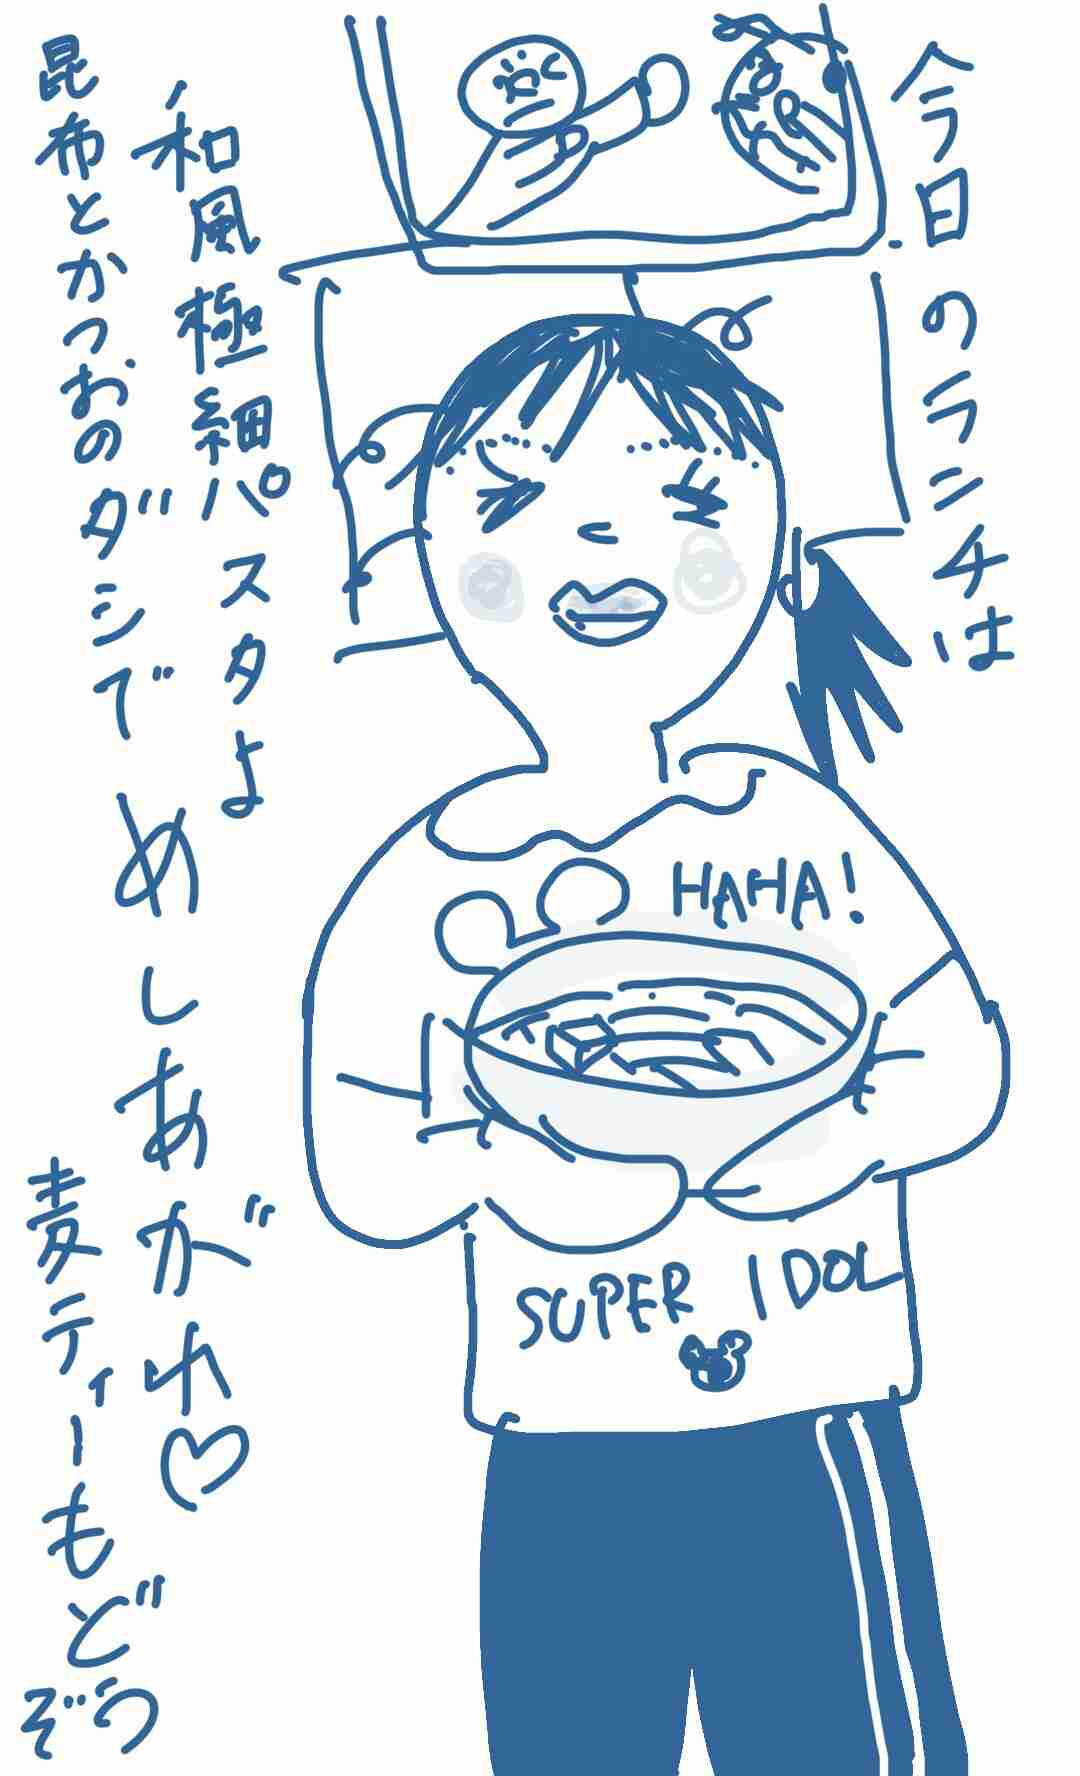 今日のランチは
和風極細パスタよ
昆布とかつおのダシで
めしあがれ♡
麦ティーもどうぞ
HAHA!
SUPER IDOL